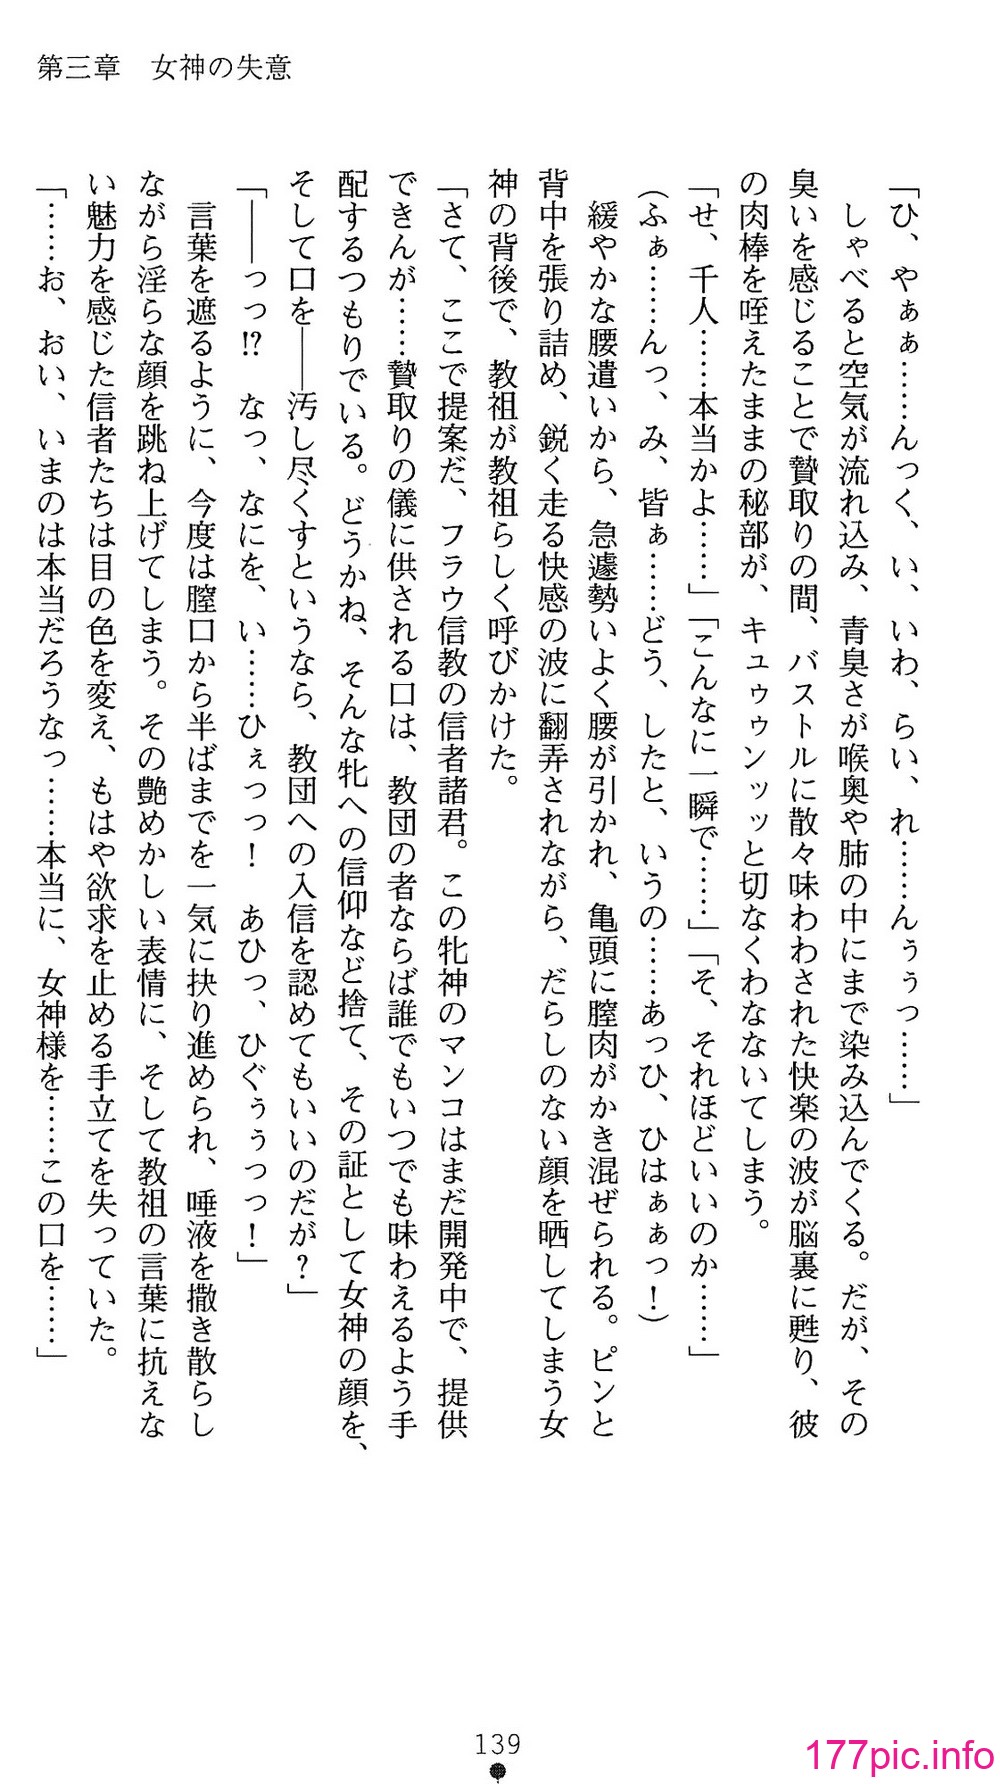 第三章　女神の失意
「ひ、やぁぁ……んっく、い、いわ、らい、れ……んぅぅっ……」
　しゃべると空気が流れ込み、青臭さが喉奥や肺の中にまで染み込んでくる。だが、その
臭いを感じることで贄取りの間、バストルに散々味わわされた快楽の波が脳裏に甦り、彼
の肉棒を咥えたままの秘部が、キュゥゥンッッと切なくわなないてしまう。
「せ、千人……本当かよ……」「こんなに一瞬で……」「そ、それほどいいのか……」
（ふぁ……んっ、み、皆ぁ……どう、したと、いうの……あっひ、ひはぁぁっ！）
　緩やかな腰遣いから、急遽勢いよく腰が引かれ、亀頭に膣肉がかき混ぜられる。ピンと
背中を張り詰め、鋭く走る快感の波に翻弄されながら、だらしのない顔を晒してしまう女
神の背後で、教祖が教祖らしく呼びかけた。
「さて、ここで提案だ、フラウ信教の信者諸君。この牝神のマンコはまだ開発中で、提供
できんが……贄取りの儀に供される口は、教団の者ならば誰でもいつでも味わえるよう手
配するつもりでいる。どうかね、そんな牝への信仰など捨て、その証として女神の顔を、
そして口を――汚し尽くすというなら、教団への入信を認めてもいいのだが？」
「――っっ!?　なっ、なにを、い……ひぇっっ！　あひっ、ひぐぅぅっっ！」
　言葉を遮るように、今度は膣口から半ばまでを一気に抉り進められ、唾液を撒き散らし
ながら淫らな顔を跳ね上げてしまう。その艶めかしい表情に、そして教祖の言葉に抗えな
い魅力を感じた信者たちは目の色を変え、もはや欲求を止める手立てを失っていた。
「……お、おい、いまのは本当だろうなっ……本当に、女神様を……この口を……」
139
177pic.info